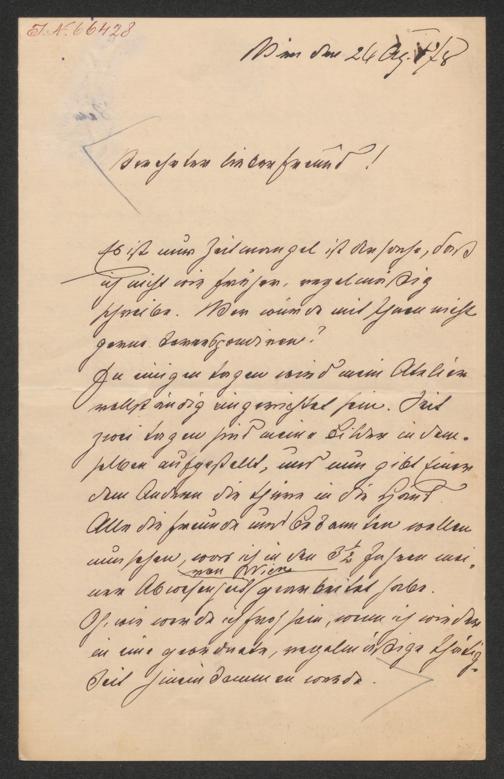 J. N. 66428
Wien den 26 Ag. 878
Verehrter lieber Freund!
Es ist nur Zeitmangel ist Ursache, daß
ich nicht wie früher, regelmäßig
schreibe. Wer würde mit Ihnen nicht
gerne correspondiren?
In einigen Tagen wird mein Atelier
vollständig eingerichtet sein. Seit
zwei Tagen sind meine Bilder in dem-
selben aufgestellt, und nun gibt Einer
dem Anderen die Thüre in die Hand.
Alle die Freunde und Bekannten wollen
nun sehen, was ich in den 3½ Jahren mei-
von Wien
ner Abwesenheit gearbeitet habe.
Oh, wie werde ich froh sein, wenn ich wieder
in eine geordnete, regelmäßige Thätig-
keit hineinkommen werde.